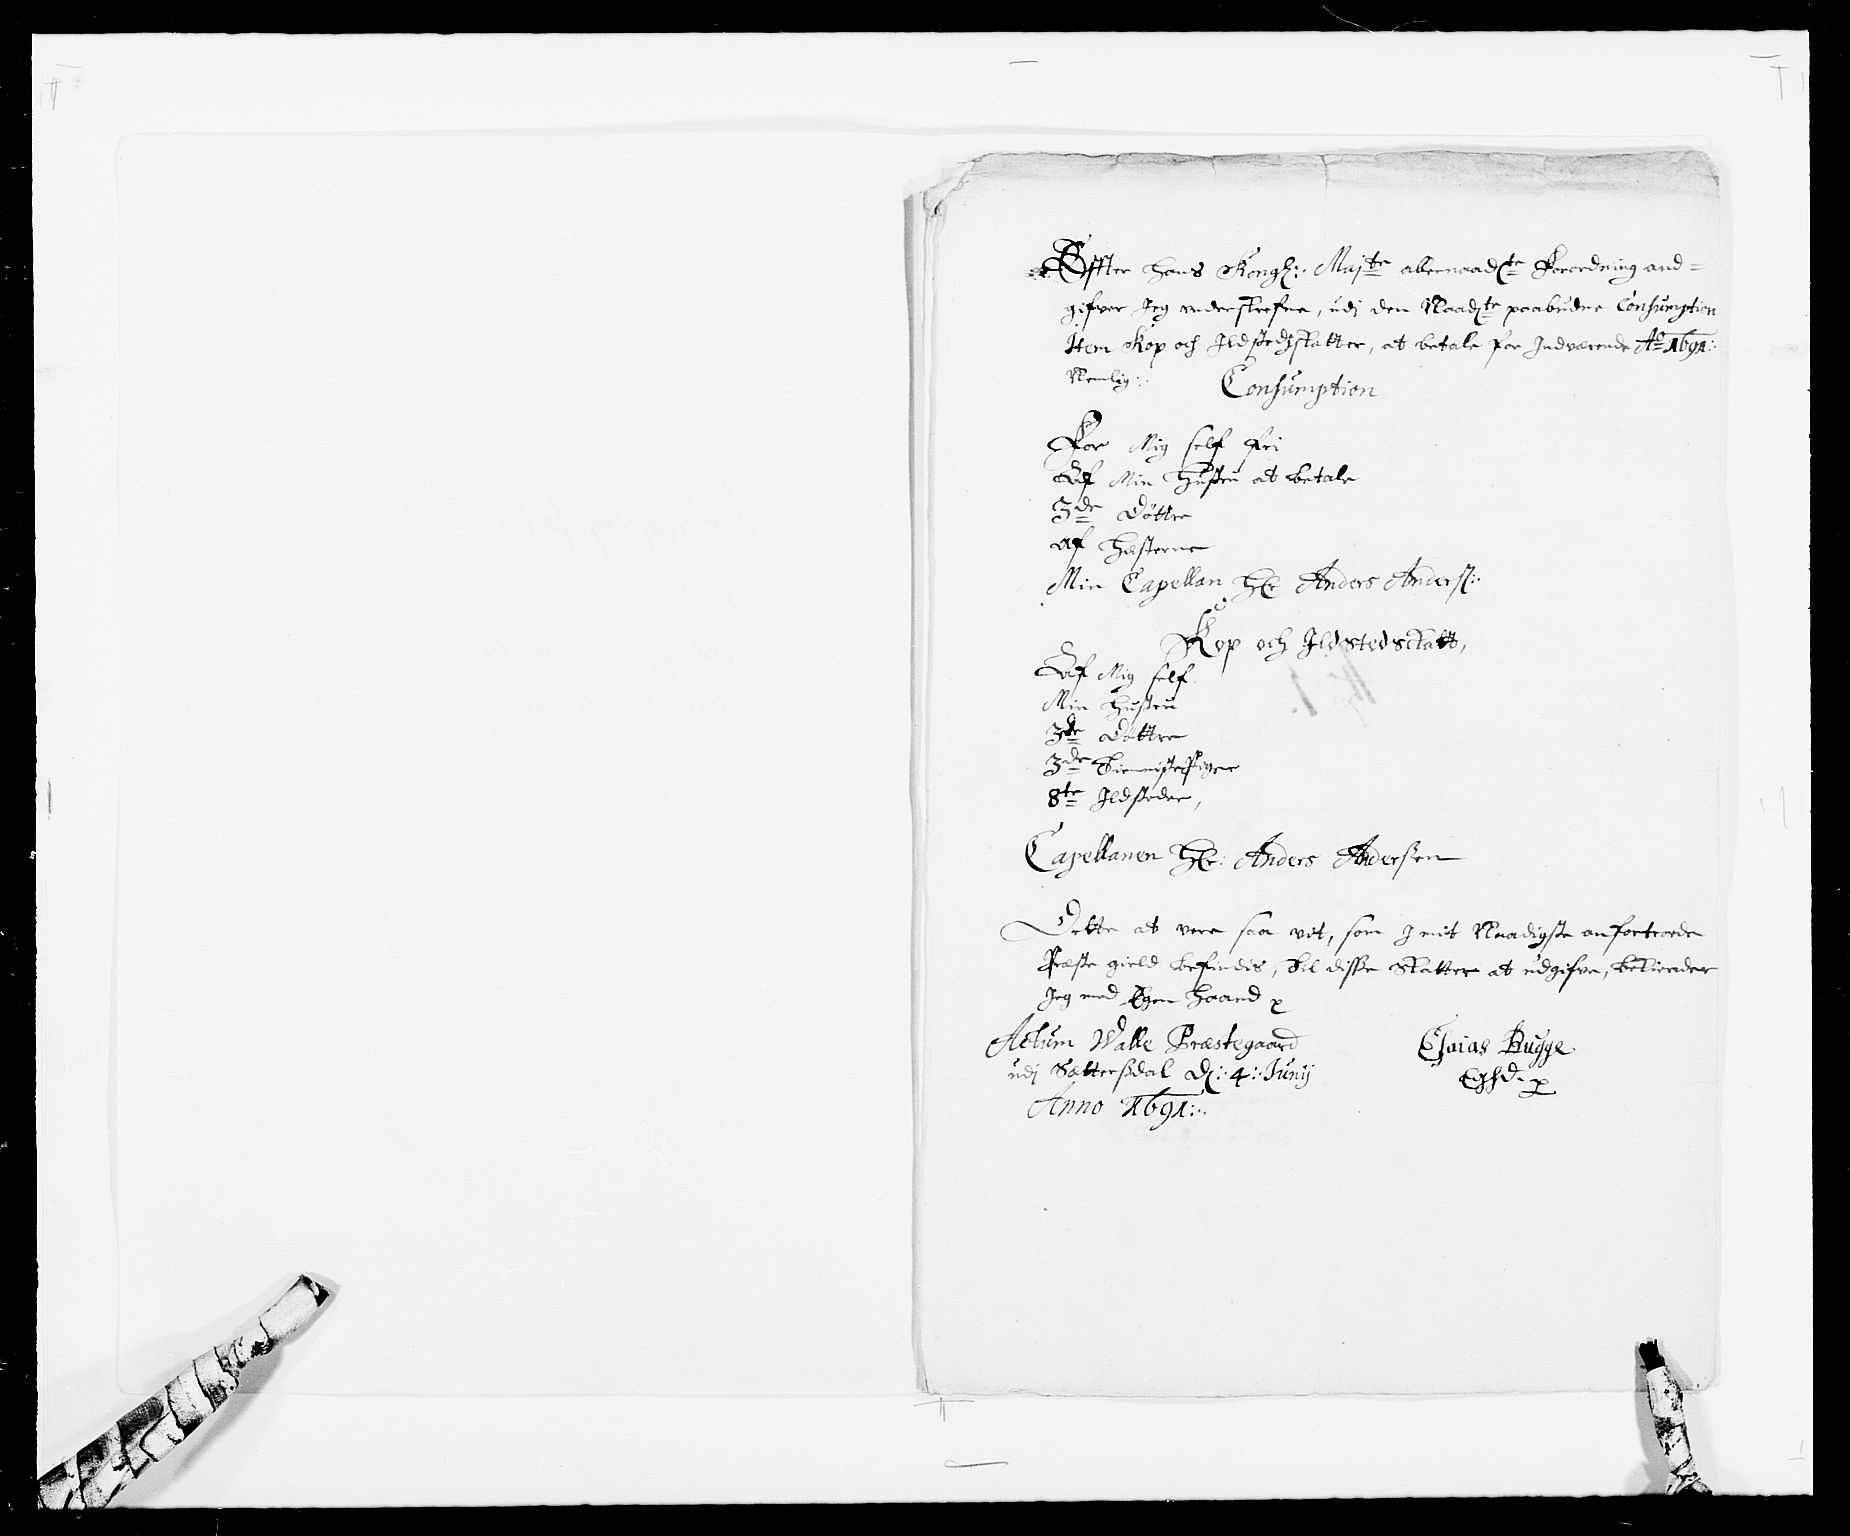 Effter Hans Kongl: Maj:te allernaad:te Forordning and=
gifver Jeg underskrefne, udj den Naad:te paabudne Consumption
Item Kop och Ildstedskatter, at betale for Indværende A:o 1691:
Nemlig:
Consumption
For Mig self fri
Af Min Hustru at betale
3de Døttre
Af Hæsterne
Min Capellan Hr Anders Anders:
Kop och Ildstedskatt,
Af Mig self
Min Hustru
3de Døttre
3de TiennistePiger
8te Ildsteder,
Capellanen Hr: Anders Andersen
Dette at vere saa vit, som J mit Naadigste anfortroede
Præste gield befindis, til disse Skatter at udgifve, bekiender
Jeg med Egen Haand
Actum Walle Præstegaard
udj Sættersdal D: 4: Junij
Anno 1691:
Esaias Bugge
Eghd.